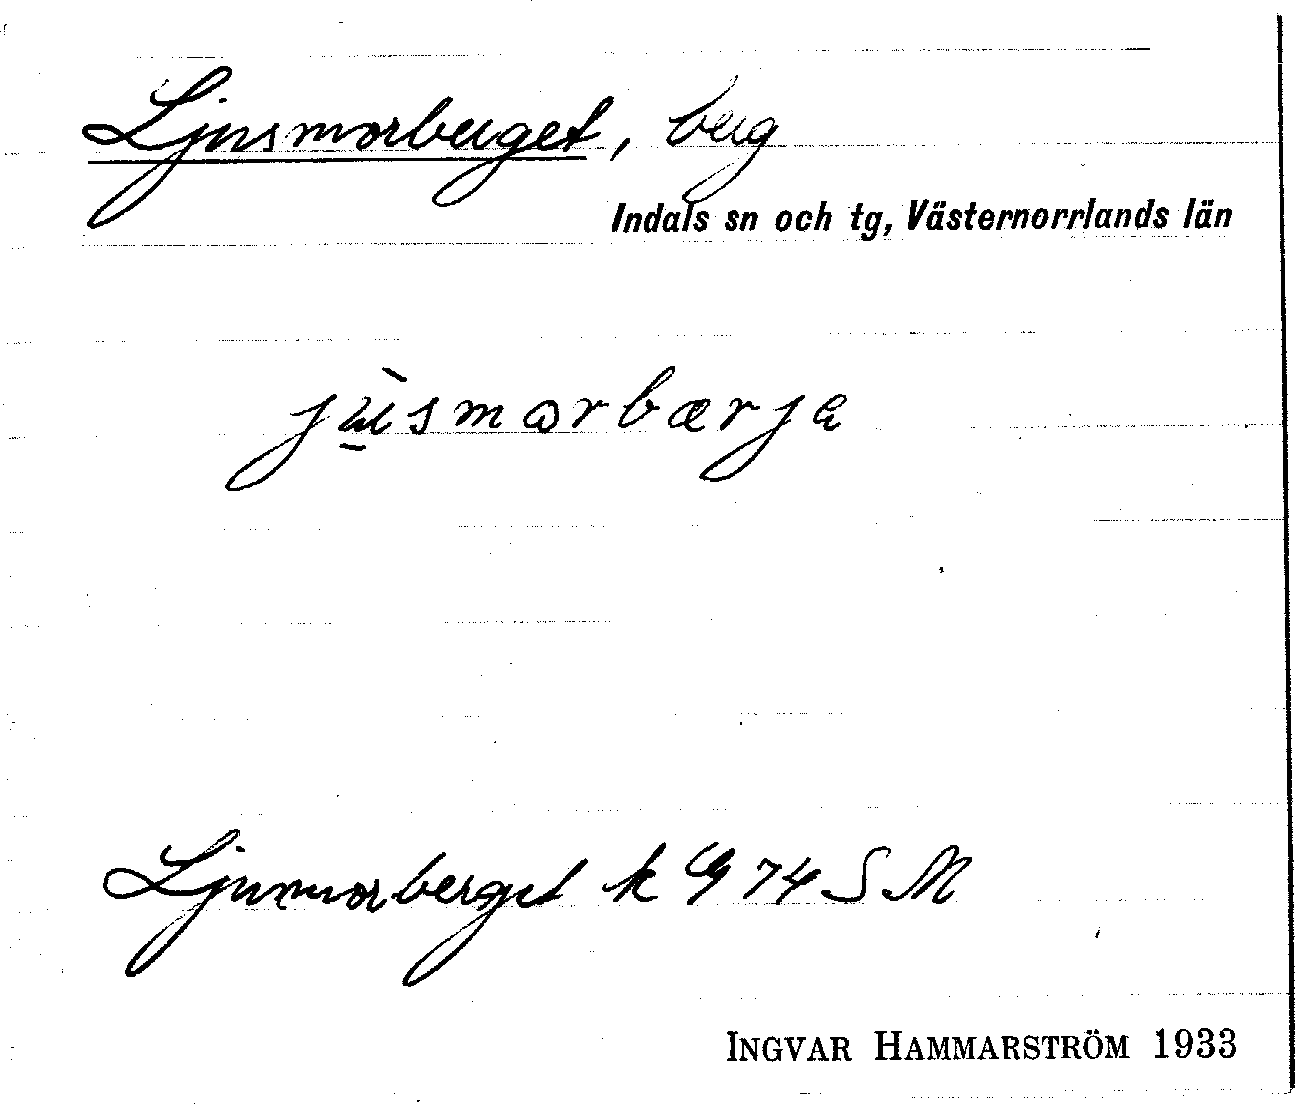 Ljusmorberget, berg
Indals sn och tg, Västernorrlands län
jùsmɷrbærja
Ljusmorberget k G 74 SM
INGVAR HAMMARSTRÖM 1933